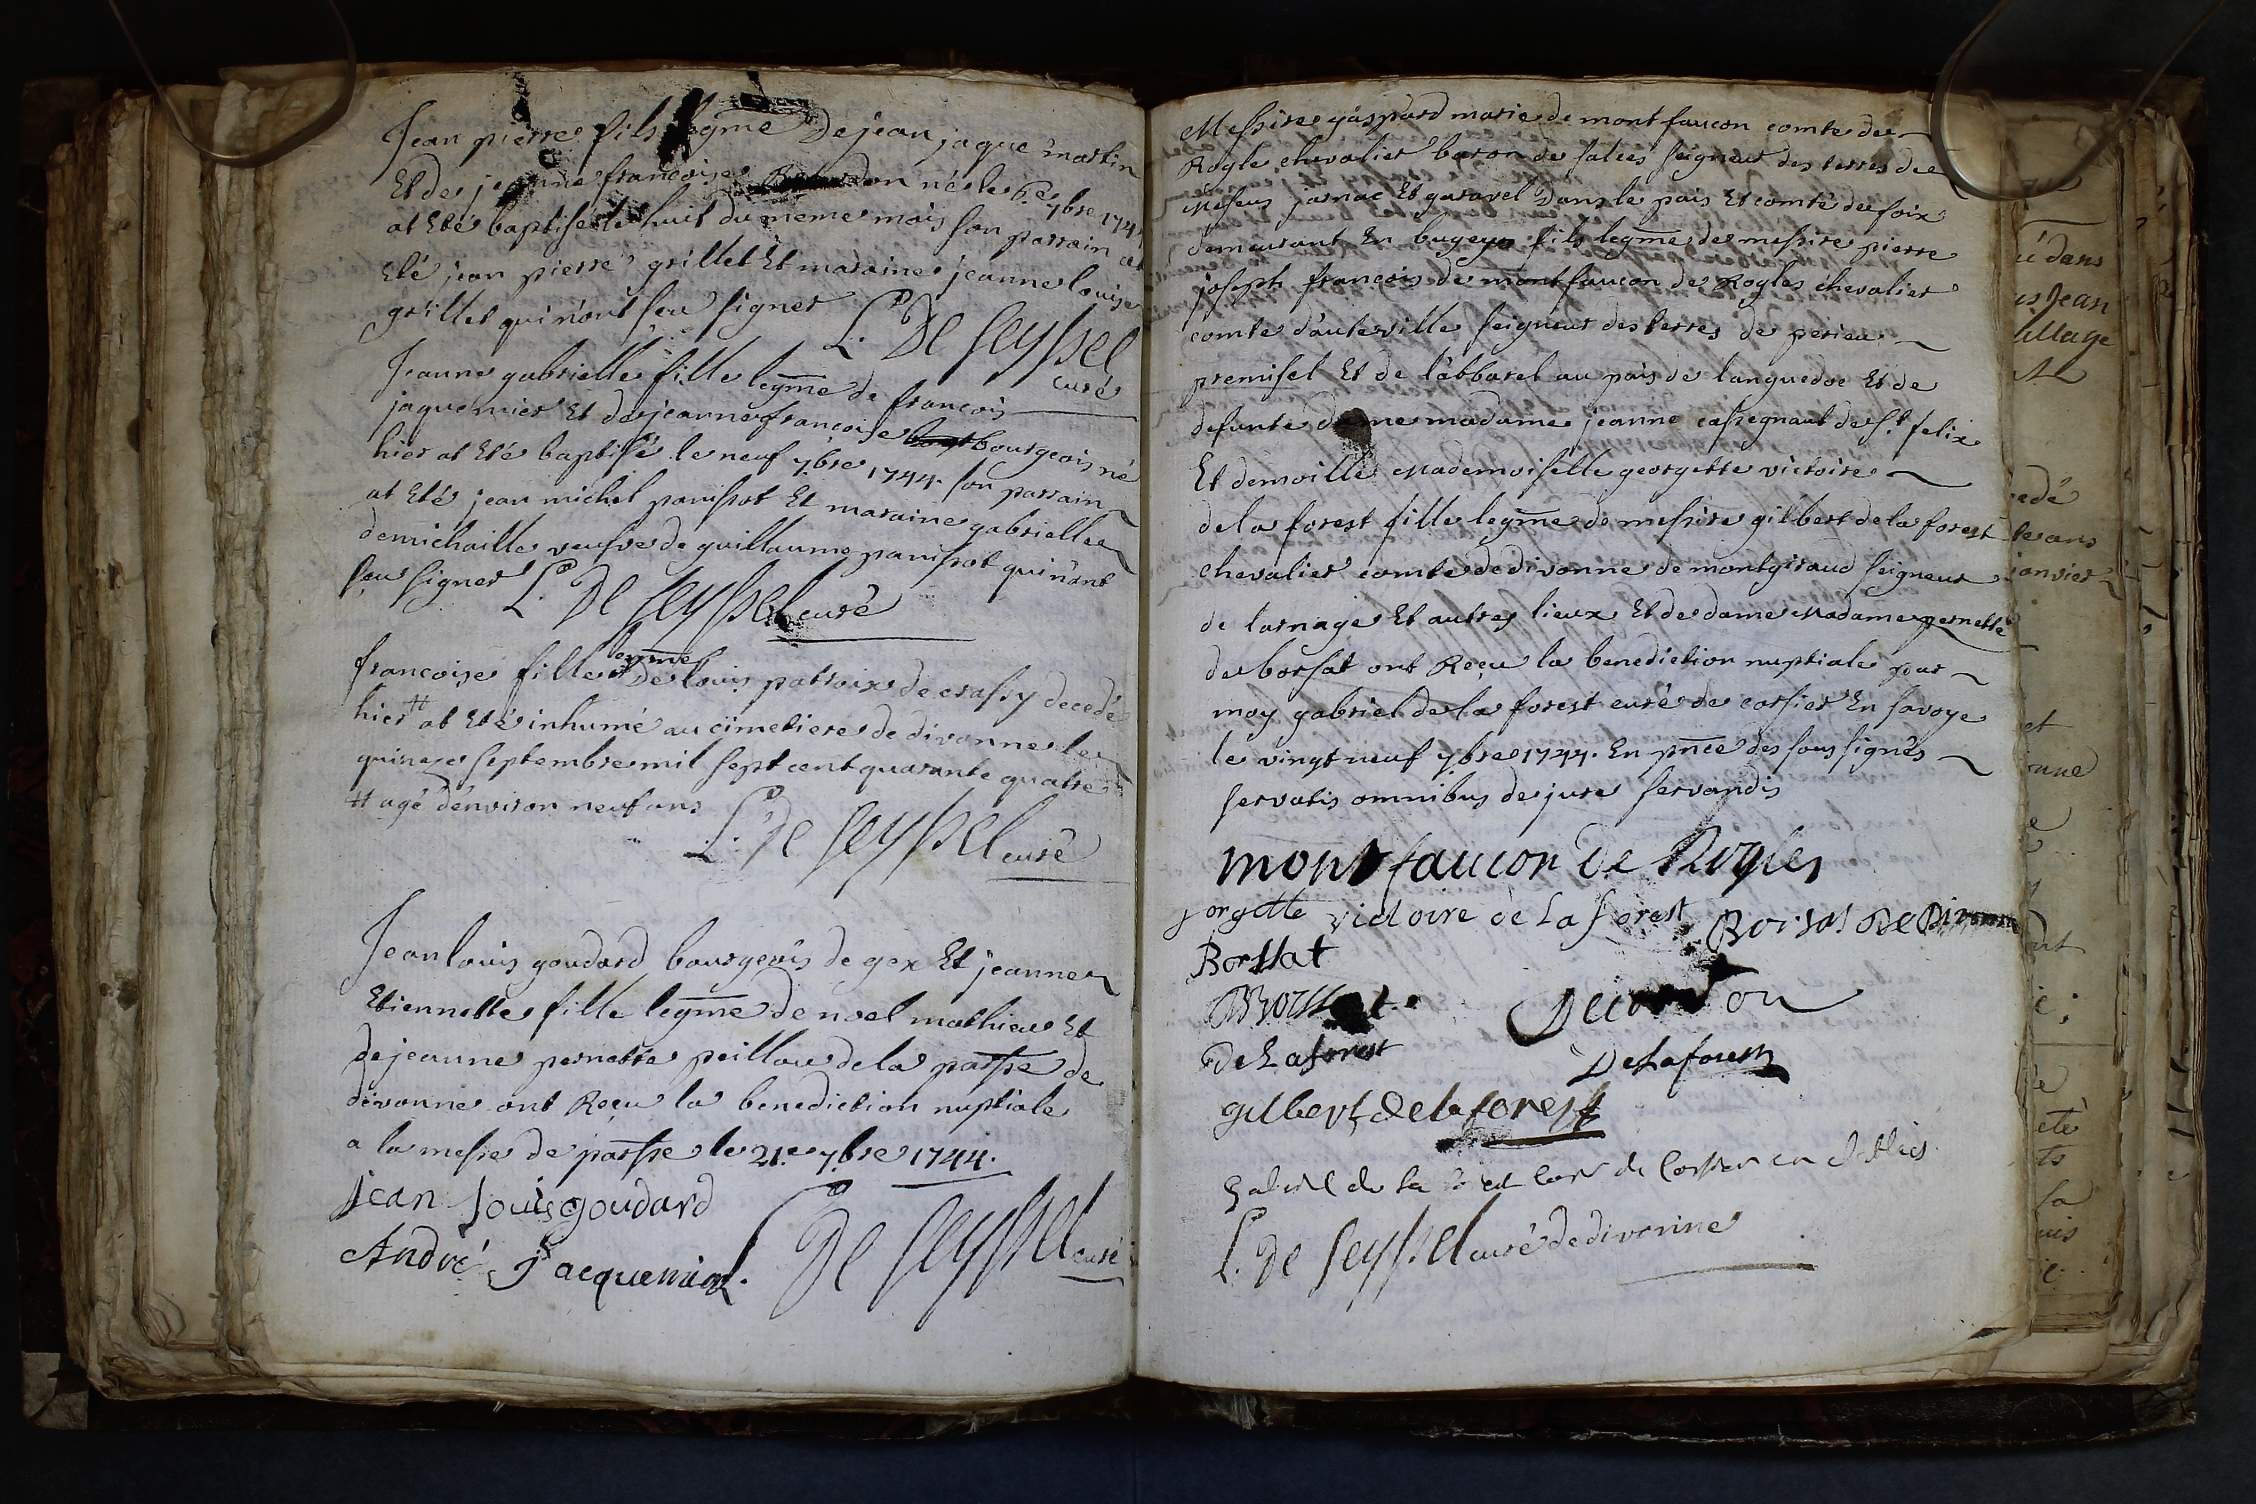 Jean pierre fils legme de jean jaque martin
Et de jeanne francoise né le 6e 7bre 1744
at Eté baptisé le huit du meme mois son parrain at
Eté jean pierre grillet Et maraine jeanne louise
grillet qui n'ont seu signer L. De Seyssel
curé
Jeanne gabrielle fille legme de francois
jaquemier Et de jeanne francoise bourgeois né
hier at Eté baptisé le neuf 7bre 1744. son parrain
at Eté jean michel panissot Et maraine gabrielle
demichaille veufve de guillaume panissot qui n'ont
seu signer L. De Seyssel curé
francoise fille legme De louis patroix de crassy decedé
hier # at Eté inhumé au cimetiere de divonne le
quinze septembre mil sept cent quarante quatre
# agé d'environ neuf ans L. De Seyssel curé
Jean louis goudard bourgeois de gex Et jeanne
Etiennette fille legme de noel mathieu Et
de jeanne pernette peillou de la passe de
divonne ont Reçu la benediction nuptiale
a la messe de passe le 21e 7bre 1744.
jean louis goudard
André jacquemier. L. De Seyssel curé
Messire gaspard marie de montfaucon comte de
Rogle chevalier baron de salies seigneur des terres de
Meseus jarnac Et garavel Dans le païs Et comté de foix
demeurant En bugey fils legme de messire pierre
joseph françois de montfaucon de Rogles chevalier
comte d'auteville seigneur des terres de perieu
premisel Et de l'abbarel au païs de languedoc Et de
defunte dame madame jeanne cassegnaut de st felix
Et demoille Mademoiselle georgette victoire
de la forest fille legme de messire gilbert de la forest
chevalier comte de divonne de montgiraud seigneur
de larnage Et autres lieux Et de dame Madame pernette
de borsat ont Reçu la benediction nuptiale par
moy gabriel de la forest curé de corsier En savoye
le vingt neuf 7bre 1744. En pnce des sous signés
servatis omnibus de jure servandis
montfaucon de Rogles
jorgette victoire de La forest Borsat De Divonne
Borssat
Decordon
De Laforest
Delaforest
gilbert de la forest
gabriel de la forest curé de Corsier en
L. De Seyssel curé de divonne